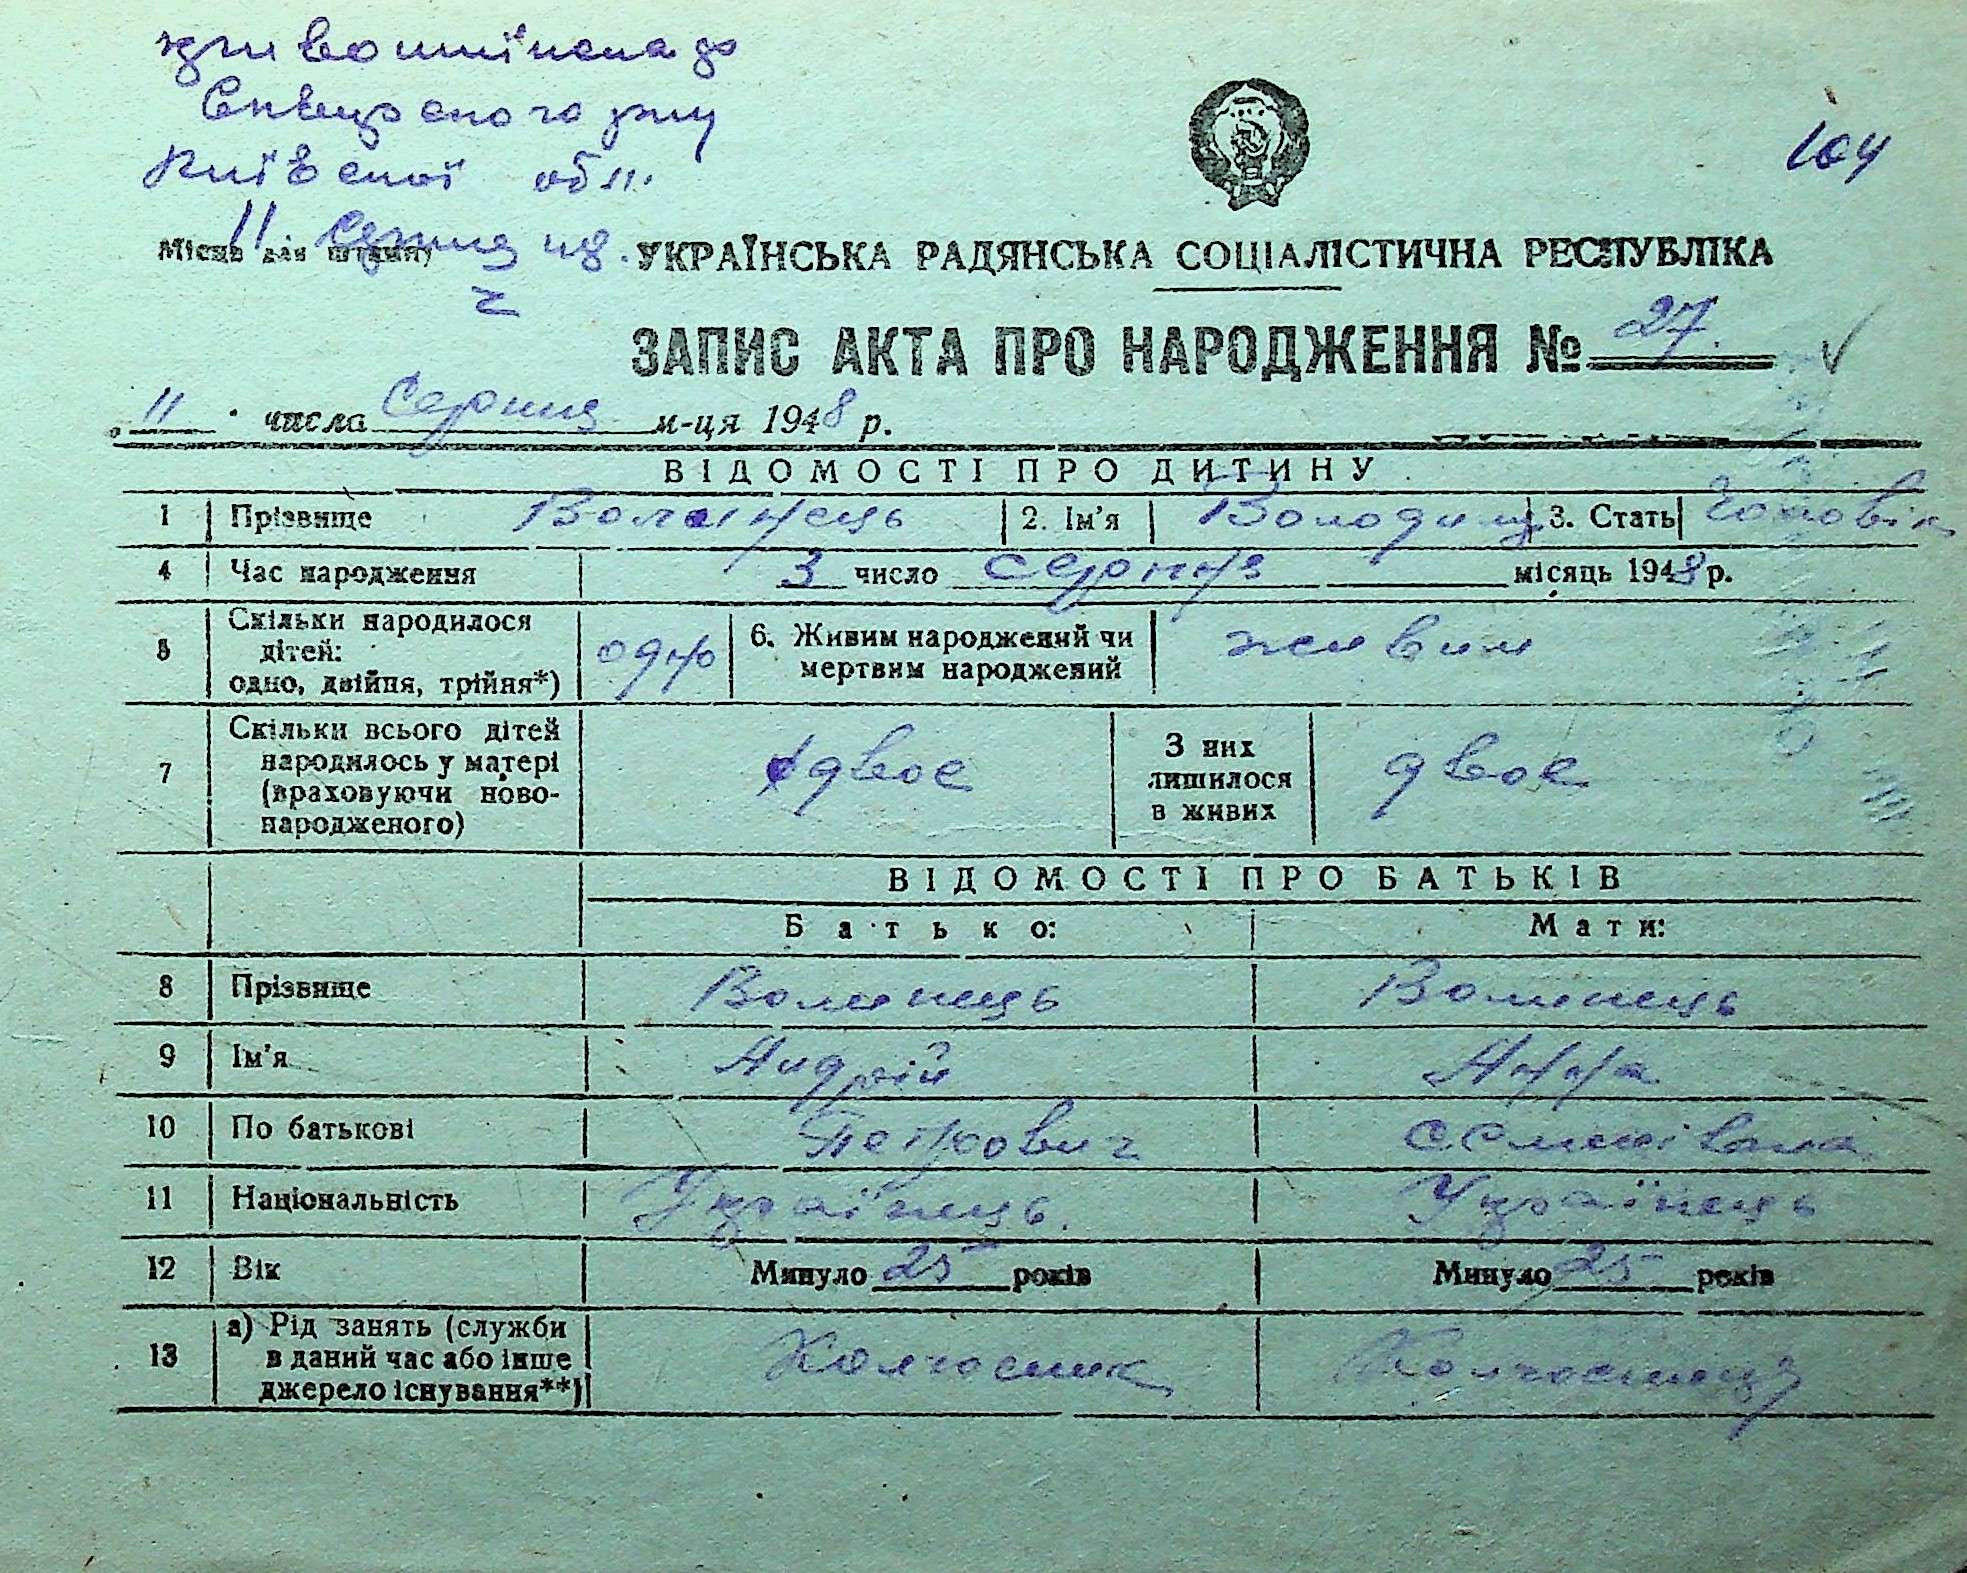 Кривошиїнена до
Сквирского р-ну
Київскої обл.
104
Місце для штампу
11 Серпня
УКРАЇНСЬКА РАДЯНСЬКА СОЦІАЛІСТИЧНА РЕСПУБЛІКА
ЗАПИС АКТА ПРО НАРОДЖЕННЯ № 27.
„11" числа Серпня м-ця 1948 р.
ВІДОМОСТІ ПРО ДИТИНУ
1 Прізвище Волинець 2. Ім'я Володимир 3. Стать Чоловік
4 Час народження 3 число серпня місяць 1948 р.
5 Скільки народилося
дітей:
одно, двійня, трійня*) одно
6. Живим народжений чи
мертвим народжений живим
7 Скільки всього дітей
народилось у матері
(враховуючи ново-
народженого) двоє
З них
лишилося
в живих двоє
ВІДОМОСТІ ПРО БАТЬКІВ
Батько: Мати:
8 Прізвище Волинець Волинець
9 Ім'я Андрій Анна
10 По батькові Петрович семенівна
11 Національність Українець. Українець
12 Вік Минуло 25 років Минуло 25 років
13 а) Рід занять (служби
в даний час або інше
джерело існування**) Колгосник Колгосниця